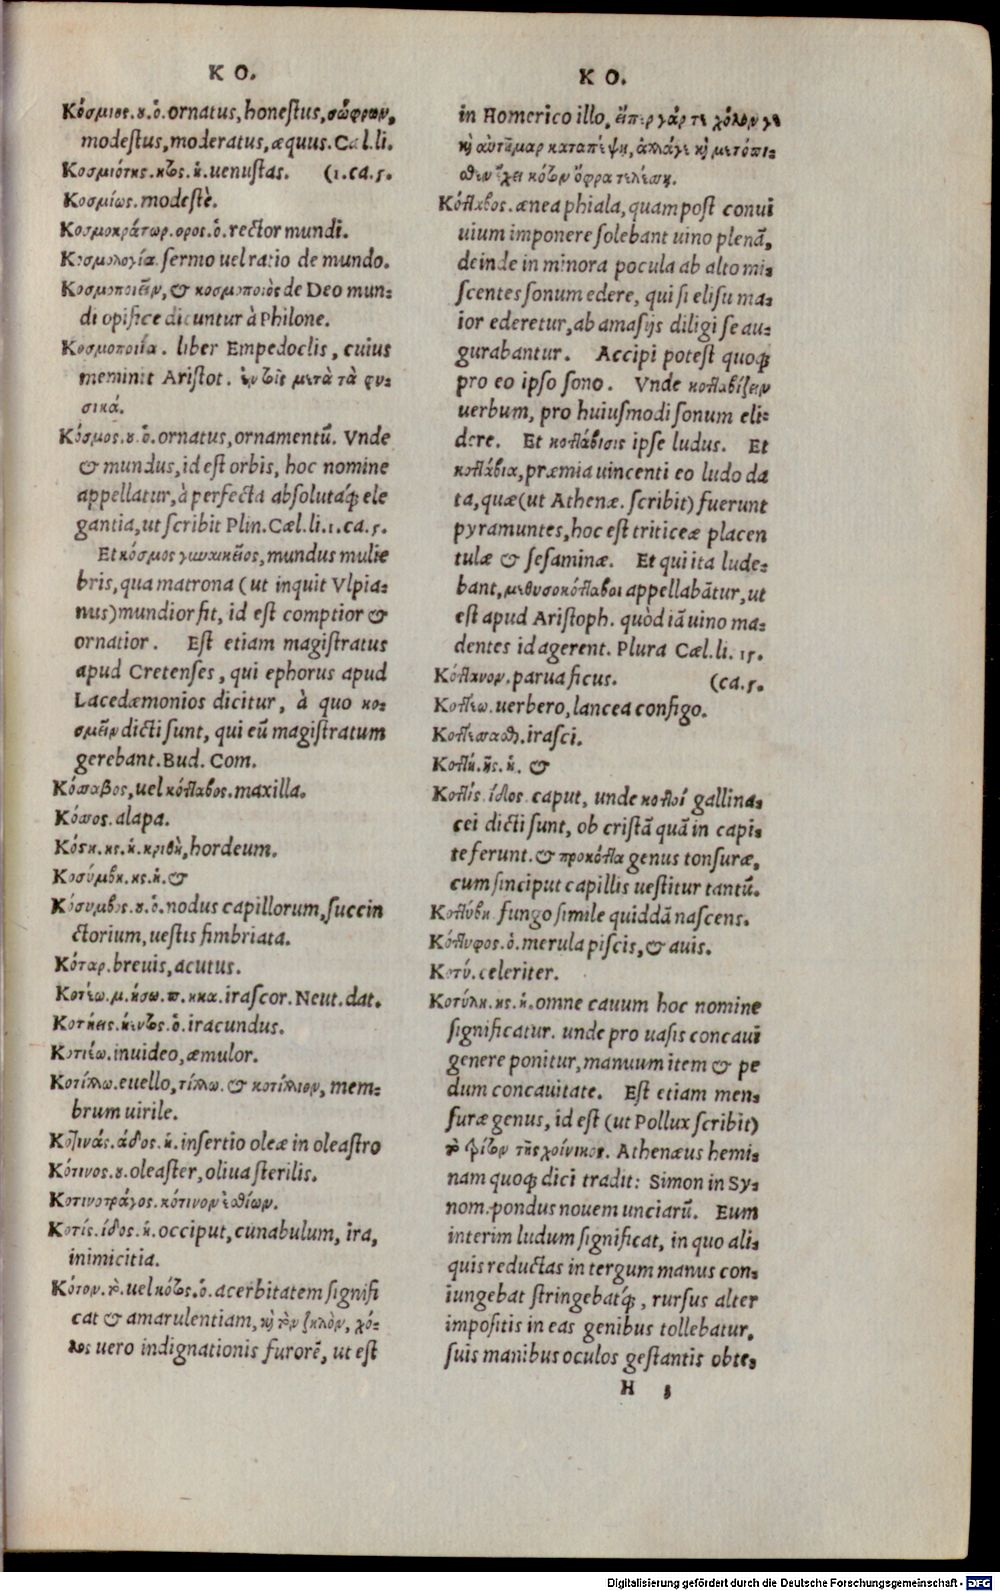 K O.
Κόσμιος.ȣ.ὁ.ornatus, honeſtus, σώφρων,
modeſtus, moderatus, æquus. Cal.li.
Κοσμιότης.ητος.ἡ.uenuſtas. (1.ca.5.
Κοσμίως.modeſtè.
Κοσμοκράτωρ.ορος.ὁ.rector mundi.
Κοσμολογία.ſermo uel ratio de mundo.
Κοσμοποιεῖν, & κοσμοποιὸς de Deo mun:
di opifice dicuntur à Philone.
Κοσμοποιΐα. liber Empedoclis, cuius
meminit Ariſtot. ἐν τοῖς μετὰ τὰ φυ:
σικά.
Κόσμος.ȣ.ὁ.ornatus, ornamentũ. Vnde
& mundus, id eſt orbis, hoc nomine
appellatur, à perfecta abſolutaq́; ele
gantia, ut ſcribit Plin. Cæl.li.1.ca.5.
Et κόσμος γυναικεῖος, mundus mulie
bris, qua matrona (ut inquit Vlpia:
nus) mundior fit, id eſt comptior &
ornatior. Eſt etiam magiſtratus
apud Cretenſes, qui ephorus apud
Lacedæmonios dicitur, à quo κο:
σμεῖν dicti ſunt, qui eũ magiſtratum
gerebant. Bud. Com.
Κόσαβος, uel κότταβος.maxilla.
Κόσος.alapa.
Κόςη.ης.ἡ.κριθὴ, hordeum.
Κοσύμβη.ης.ἡ.&
Κόσυμβος.ȣ.ὁ.nodus capillorum, ſuccin
ctorium, ueſtis fimbriata.
Κόταρ.breuis, acutus.
Κοτέω.μ.ήσω.π.ηκα.iraſcor. Neut. dat.
Κοτήεις.ήεντος.ὁ.iracundus.
Κοτιέω.inuideo, æmulor.
Κοτίλλω.euello, τίλλω.& κοτίλλιον, mem:
brum uirile.
Κοτινάς.άδος.ἡ.inſertio oleæ in oleaſtro
Κότινος.ȣ.oleaſter, oliua ſterilis.
Κοτινοτράγος.κότινον ἐσθίων.
Κοτίς.ίδος.ἡ.occiput, cunabulum, ira,
inimicitia.
Κότον.τὸ.uel κότος.ὁ.acerbitatem ſignifi
cat & amarulentiam, καὶ τὸν ζῆλὸν, χό:
λος uero indignationis furorẽ, ut eſt
K O.
in Homerico illo, εἴπερ γάρ τε χόλον γε
καὶ αὐτῆμαρ καταπέψῃ, ἀλλάγε καὶ μετόπι:
σθεν ἔχει κότον ὄφρα τελέσῃ.
Κότταβος.ænea phiala, quam poſt conui
uium imponere ſolebant uino plenã,
deinde in minora pocula ab alto mi:
ſcentes ſonum edere, qui ſi eliſu ma:
ior ederetur, ab amaſijs diligi ſe au:
gurabantur. Accipi poteſt quoq;
pro eo ipſo ſono. Vnde κοτταβίζειν
uerbum, pro huiuſmodi ſonum eli:
dere. Et κοττάβισις ipſe ludus. Et
κοττάβια, præmia uincenti eo ludo da
ta, quæ (ut Athenæ. ſcribit) fuerunt
pyramuntes, hoc eſt triticeæ placen
tulæ & ſeſaminæ. Et qui ita lude:
bant, μεθυσοκότταβοι appellabãtur, ut
eſt apud Ariſtoph. quòd iã uino ma:
dentes id agerent. Plura Cæl.li. 15.
Κότταινον.parua ficus. (ca.5.
Κοττέω.uerbero, lancea configo.
Κοττέσσαθ.iraſci.
Κοττή.ῆς.ἡ. &
Κοττίς.ίδος.caput, unde κοττοί gallina:
cei dicti ſunt, ob criſtã quã in capi:
te ferunt. & προκόττα genus tonſuræ,
cum ſinciput capillis ueſtitur tantũ.
Κοττύβη.fungo ſimile quiddã naſcens.
Κόττυφος.ὁ.merula piſcis, & auis.
Κοτύ.celeriter.
Κοτύλη.ης.ἡ.omne cauum hoc nomine
ſignificatur. unde pro uaſis concaui
genere ponitur, manuum item & pe
dum concauitate. Eſt etiam men:
ſuræ genus, id eſt (ut Pollux ſcribit)
τὸ τρίτον τῆς χοίνικος. Athenæus hemi:
nam quoq; dici tradit: Simon in Sy:
nom. pondus nouem unciarũ. Eum
interim ludum ſignificat, in quo ali:
quis reductas in tergum manus con:
iungebat ſtringebatq́;, rurſus alter
impoſitis in eas genibus tollebatur,
ſuis manibus oculos geſtantis obte:
H 5
Digitalisierung gefördert durch die Deutsche Forschungsgemeinschaft - DFG